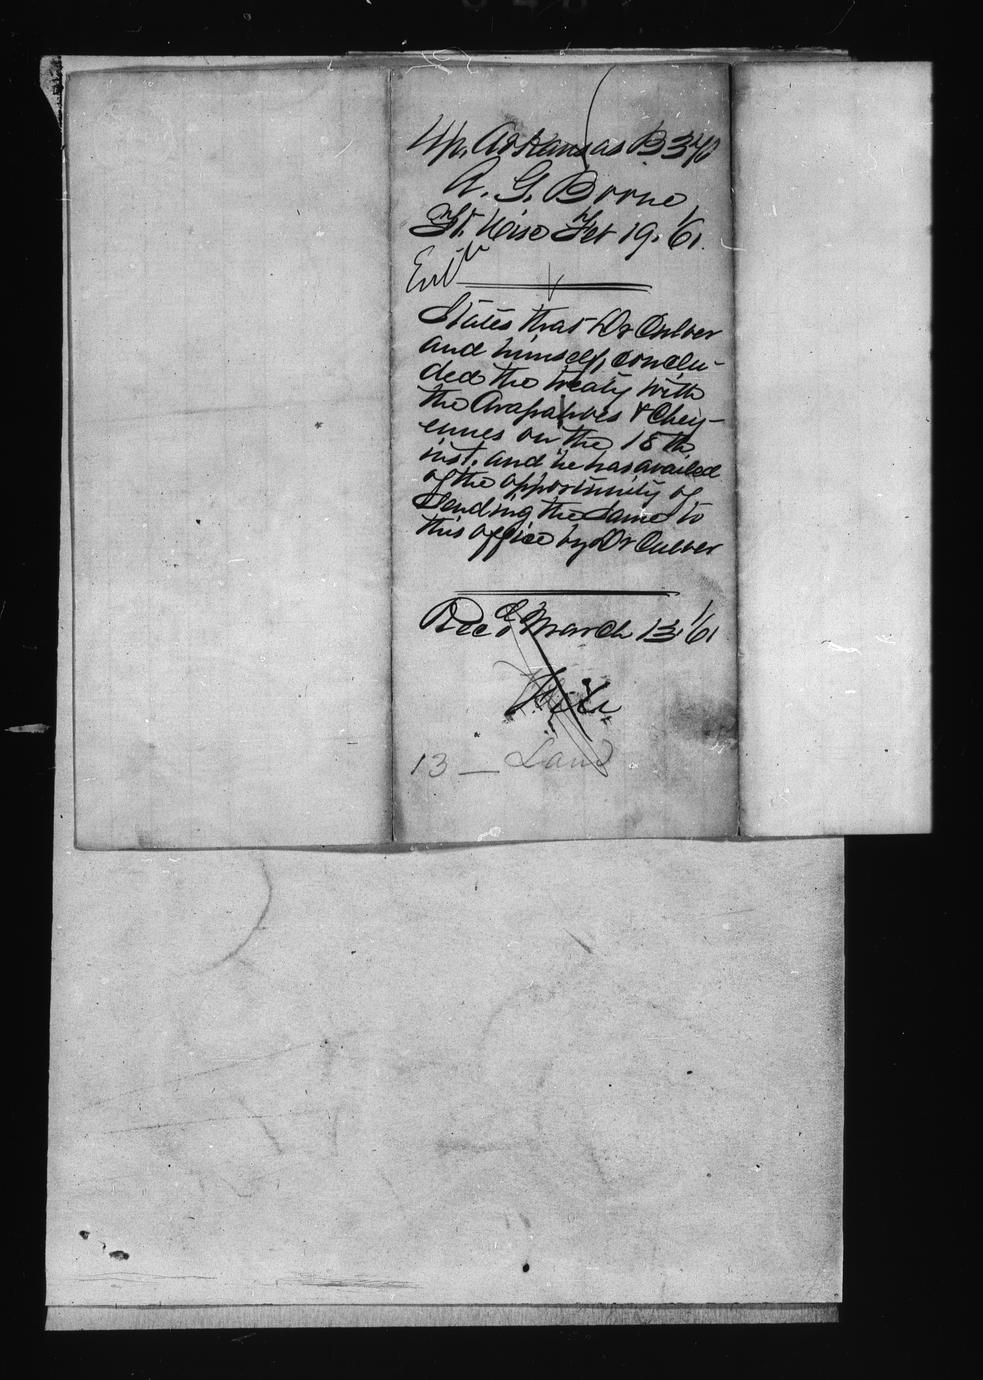 Up. Arkansas B 340
A. G. Boone
Ft. Wise Feb 19. /61.
States that Dr Culver
and himself, conclu-
ded the treaty with
the Arapahoes & Chey-
ennes on the 18th
inst. and he has availed
of the opportunity of
Sending the Same to
this office by Dr Culver
Recd March 13. /61
File
13 — Land